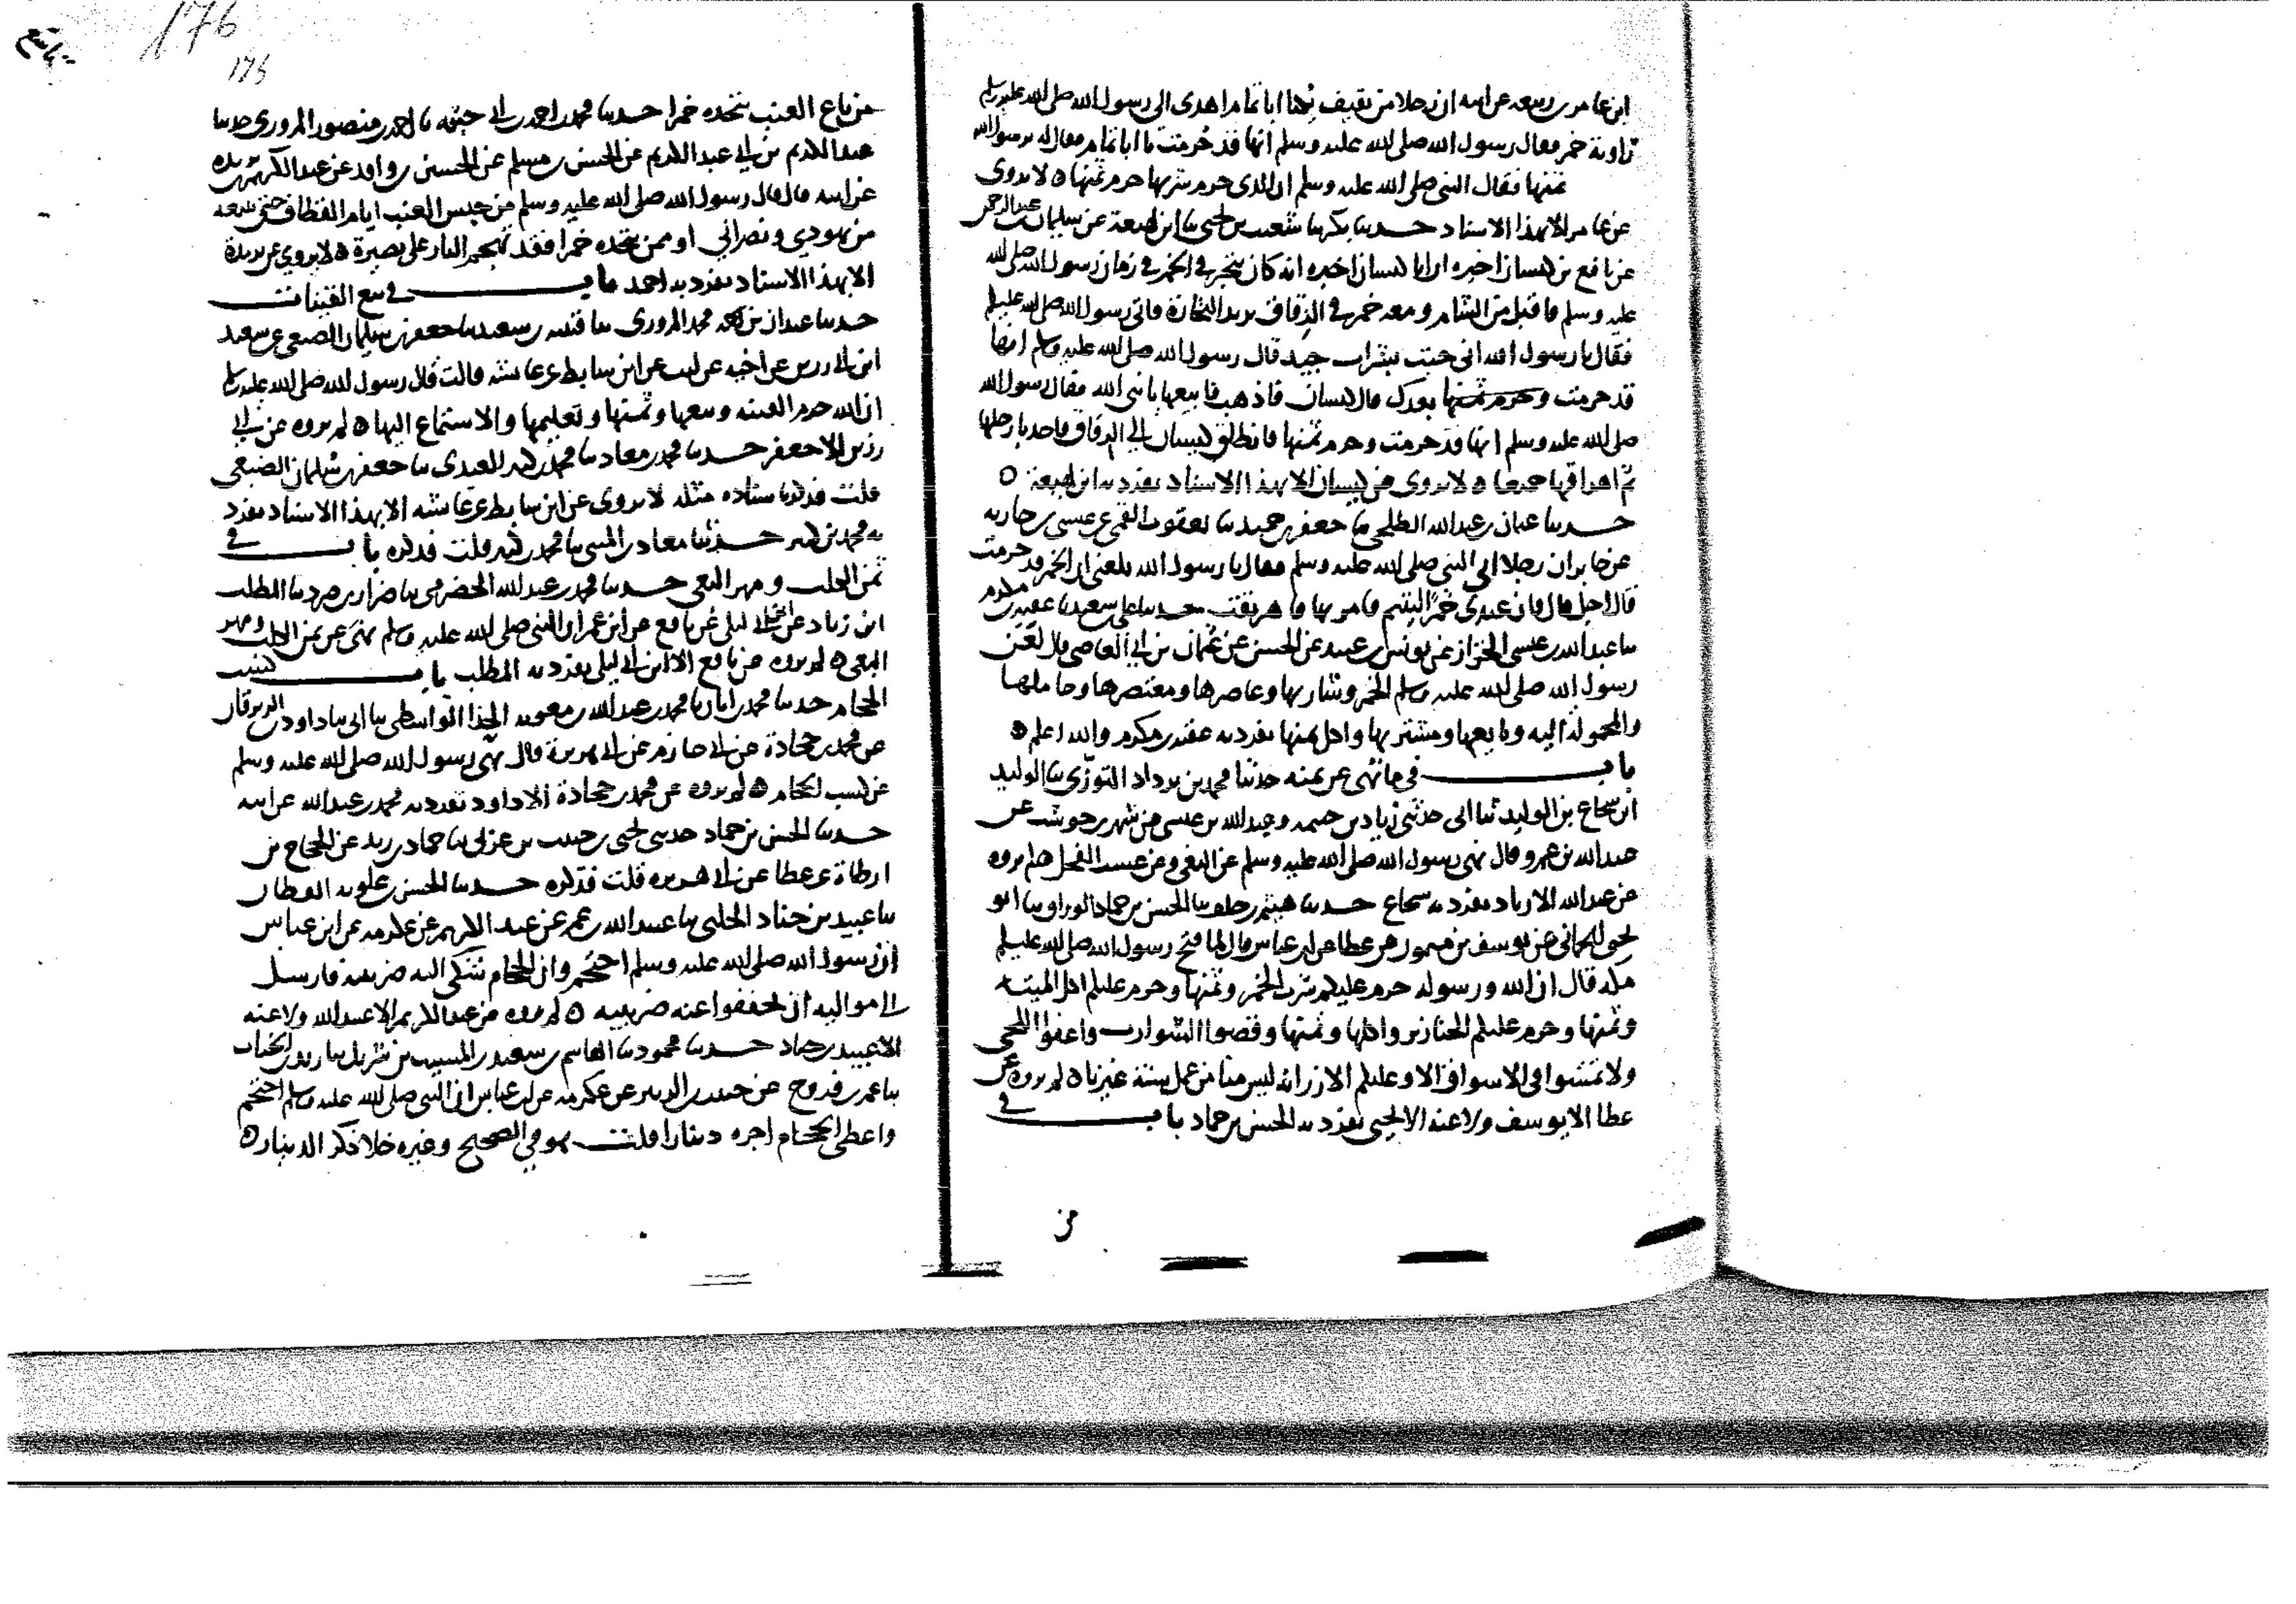 ابن عامر بن ربيعه عن ابيه ان رجلا من ثقيف يكنا ابا تمام اهدى الى رسول الله صلى الله عليه وسلم
راوية خمر فقال رسول الله صلى الله عليه وسلم انها قد حُرمت يا ابا تمام فقال له يرسول الله
ثمنها فقال النبي صلى الله عليه وسلم ان الذي حرم شربها حرم ثمنها ه لا يروى
عن عامر الا بهذا الاسناد حدثنا بكر ثنا شعيب بن يحيى ثنا ابن لهيعة عن سليمان بن عبد الرحمن
عن نافع بن كيسان اخبره ان ابا كيسان اخبره انه كان يتجر في الخمر في زمان رسول الله صلى الله
عليه وسلم فاقبل من الشام ومعه خمر في الزقاق يريد التجارة فاتى رسول الله صلى الله عليه وسلم
فقال يا رسول الله اني جئت بشراب جيد قال رسول الله صلى الله عليه وسلم انها
قد حرمت وحرم ثمنها بعدك قال كيسان فاذهب فابيعها يا نبي الله فقال رسول الله
صلى الله عليه وسلم انها قد حرمت وحرم ثمنها فانطلق كيسان الى الزقاق فاخذ بارجلها
ثم اهراقها جميعا ه لا يروى عن كيسان الا بهذا الاسناد تفرد به ابن لهيعة ه
حدثنا عبدان عبد الله الطلحي ثنا جعفر بن حميد ثنا يعقوب القمي عن عيسى بن جاريه
عن جابر ان رجلا اتى النبي صلى الله عليه وسلم فقال يا رسول الله بلغني ان الخمر قد حرمت
قال اجل قال فان عندي خمرًا ليتيم فامر بها فاهريقت حدثنا علي بن سعيد ثنا عقبة بن مكرم
ثنا عبد الله بن عيسى الخزاز عن يونس بن عبيد عن الحسن عن عثمان بن ابي العاصي قال لعن
رسول الله صلى الله عليه وسلم الخمر وشاربها وعاصرها ومعتصرها وحاملها
والمحمولة اليه وبايعها ومشتريها واكل ثمنها تفرد به عقبة بن مكرم والله اعلم ه
باب في ما نهى عن ثمنه حدثنا محمد بن يرداد التوزّي ثنا الوليد
ابن شجاع بن الوليد ثنا ابي حدثني زياد بن خيثمه وعبد الله بن عيسى عن شهر بن حوشب عن
عبد الله بن عمرو قال نهى رسول الله صلى الله عليه وسلم عن البغي وعن عسب الفحل ه لم يروه
عن عبد الله الا زياد تفرد به شجاع حدثنا هيثم بن خلف ثنا الحسن بن حماد الوراق ثنا ابو
يحيى الحماني عن يوسف بن ميمون عن عطا عن ابن عباس قال لما فتح رسول الله صلى الله عليه وسلم
مكه قال ان الله ورسوله حرم عليكم شرب الخمر وثمنها وحرم عليكم اكل الميتة
وثمنها وحرم عليكم الخنازير واكلها وثمنها وقصوا الشوارب واعفوا اللحى
ولا تمشوا في الاسواق الا وعليكم الازر انه ليس منا من عمل بسنة غيرنا ه لم يروه عن
عطا الا يوسف ولا عنه الا ابو يحيى تفرد به الحسن بن حماد باب في
من
176
176
تاسع
من باع العنب يتخذه خمرا حدثنا محمد بن احمد بن ابي خيثمه ثنا احمد بن منصور المروزي حدثنا
عبد الكريم بن ابي عبد الكريم عن الحسن بن مسلم عن الحسين بن واقد عن عبد الله بن بريده
عن ابيه قال قال رسول الله صلى الله عليه وسلم من حبس العنب ايام القطاف حتى يبيعه
من يهودي ونصراني او ممن يتخذه خمرا فقد تهجم النار على بصيرة ه لا يروى عن بريدة
الا بهذا الاسناد تفرد به احمد باب في بيع القينات
حدثنا عبدان بن محمد المروزي ثنا قتيبه بن سعيد ثنا جعفر بن سليمان الضبعي عن سعيد
ابن ابي رزين عن اخيه عن ليث عن ابن سابط عن عائشه قالت قال رسول الله صلى الله عليه وسلم
ان الله حرم القينه وبيعها وثمنها وتعليمها والاستماع اليها ه لم يروه عن ابن ابي
رزين الا جعفر حدثنا محمد بن معاذ ثنا محمد بن كثير العبدي ثنا جعفر بن سليمان الضبعي
قلت فذكر باسناده مثله لا يروى عن ابن سابط عن عائشه الا بهذا الاسناد تفرد
به محمد بن كثير حدثنا معاذ بن المثنى ثنا محمد بن كثير قلت فذكره باب في
ثمن الكلب ومهر البغي حدثنا محمد بن عبد الله الحضرمي ثنا ضرار بن صرد ثنا المطلب
ابن زياد عن ابن ابي ليلى عن نافع عن ابن عمر ان النبي صلى الله عليه وسلم نهى عن ثمن الكلب ومهر
البغي ه لم يروه عن نافع الا ابن ابي ليلى تفرد به المطلب باب كسب
الحجام حدثنا محمد بن ابان ثنا محمد بن عبد الله بن معويه الحذا الواسطي ثنا ابي ثنا داود بن الزبرقان
عن محمد بن جحادة عن ابي حازم عن ابي هريرة قال نهى رسول الله صلى الله عليه وسلم
عن كسب الحجام ه لم يروه عن محمد بن جحادة الا داود تفرد به محمد بن عبد الله عن ابيه
حدثنا الحسن بن حماد حدثني يحيى بن حبيب بن عربي ثنا حماد بن زيد عن الحجاج بن
ارطاة عن عطا عن ابي هريره قلت فذكره حدثنا الحسن بن علويه القطان
ثنا عبيد بن جناد الحلبي ثنا عبيد الله بن عمرو عن عبد الكريم عن عكرمه عن ابن عباس
ان رسول الله صلى الله عليه وسلم احتجم وان الحجام شكى اليه ضريبته فارسل
الى مواليه ان يخففوا عنه ضريبته ه لم يروه عن عبد الكريم الا عبيد الله ولا عنه
الا عبيد بن جناد حدثنا محمود ثنا القاسم بن سعيد بن المسيب بن شريك ثنا زيد بن الحباب
ثنا عمر بن فروخ عن حبيب بن الزبير عن عكرمه عن ابن عباس ان النبي صلى الله عليه وسلم احتجم
واعطى الحجام اجره دينارا قلت هو في الصحيح وغيره خلا ذكر الدينار ه